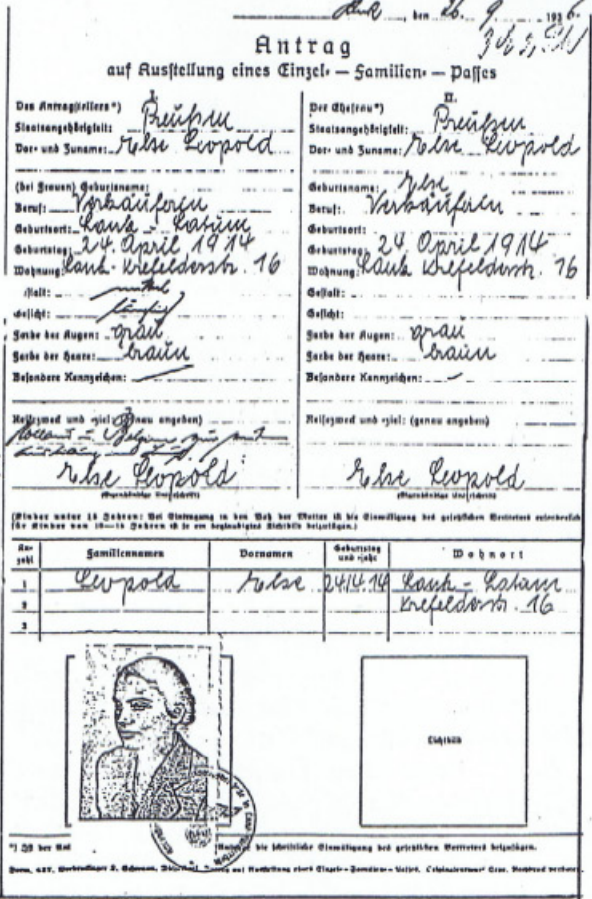 den 26. 9. 1936.
Antrag
auf Ausstellung eines Einzel- — Familien- — Passes
I.
Des Antragstellers*)
Staatsangehörigkeit: Preußen
Vor- und Zuname: Else Leopold
(bei Frauen) Geburtsname:
Beruf: Verkäuferin
Geburtsort: Lank - Latum
Geburtstag: 24. April 1914
Wohnung: Lank Krefelderstr. 16
Gestalt: mittel
Gesicht:
Farbe der Augen: grau
Farbe der Haare: braun
Besondere Kennzeichen:
Reisezweck und -ziel: (genau angeben)
Holland u. Belgien
Else Leopold
(Eigenhändige Unterschrift)
II.
Der Ehefrau*)
Staatsangehörigkeit: Preußen
Vor- und Zuname: Else Leopold
Geburtsname: Else
Beruf: Verkäuferin
Geburtsort:
Geburtstag: 24 April 1914
Wohnung: Lank Krefelderstr. 16
Gestalt:
Gesicht:
Farbe der Augen: grau
Farbe der Haare: braun
Besondere Kennzeichen: —
Reisezweck und -ziel: (genau angeben)
Else Leopold
(Eigenhändige Unterschrift)
(Kinder unter 15 Jahren: Bei Eintragung in den Paß der Mutter ist die Einwilligung des gesetzlichen Vertreters erforderlich
für Kinder von 10—15 Jahren ist je ein beglaubigtes Lichtbild beizufügen.)
Anzahl Familiennamen Vornamen Geburtstag und -jahr Wohnort
1 Leopold Else 24/4.14 Lank - Latum
2 Krefelderstr. 16
3
Lichtbild
die schriftliche Einwilligung des gesetzlichen Vertreters beizufügen.